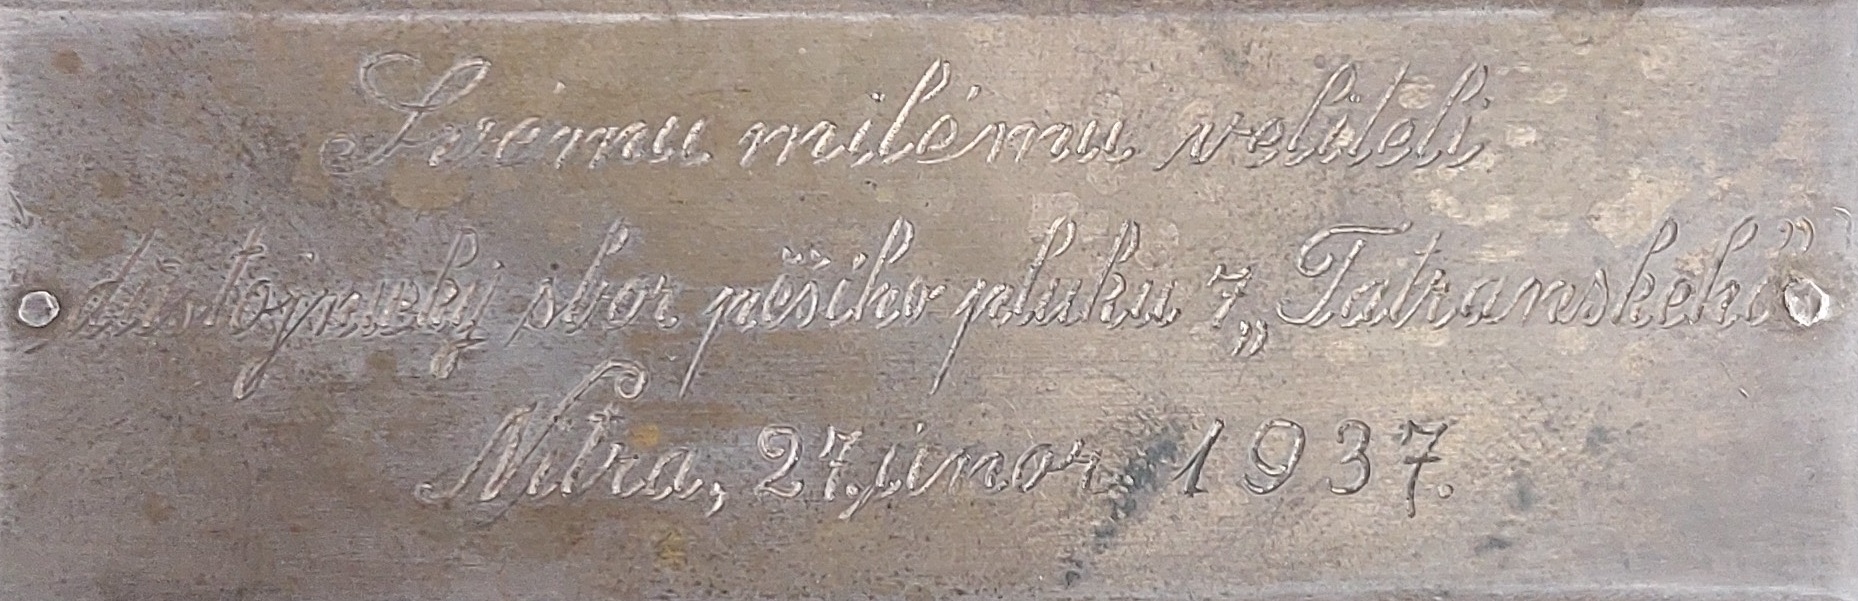 Svému milému veliteli
důstojnický sbor pěšího pluku 7 „Tatranského”
Nitra, 27. únor 1937.